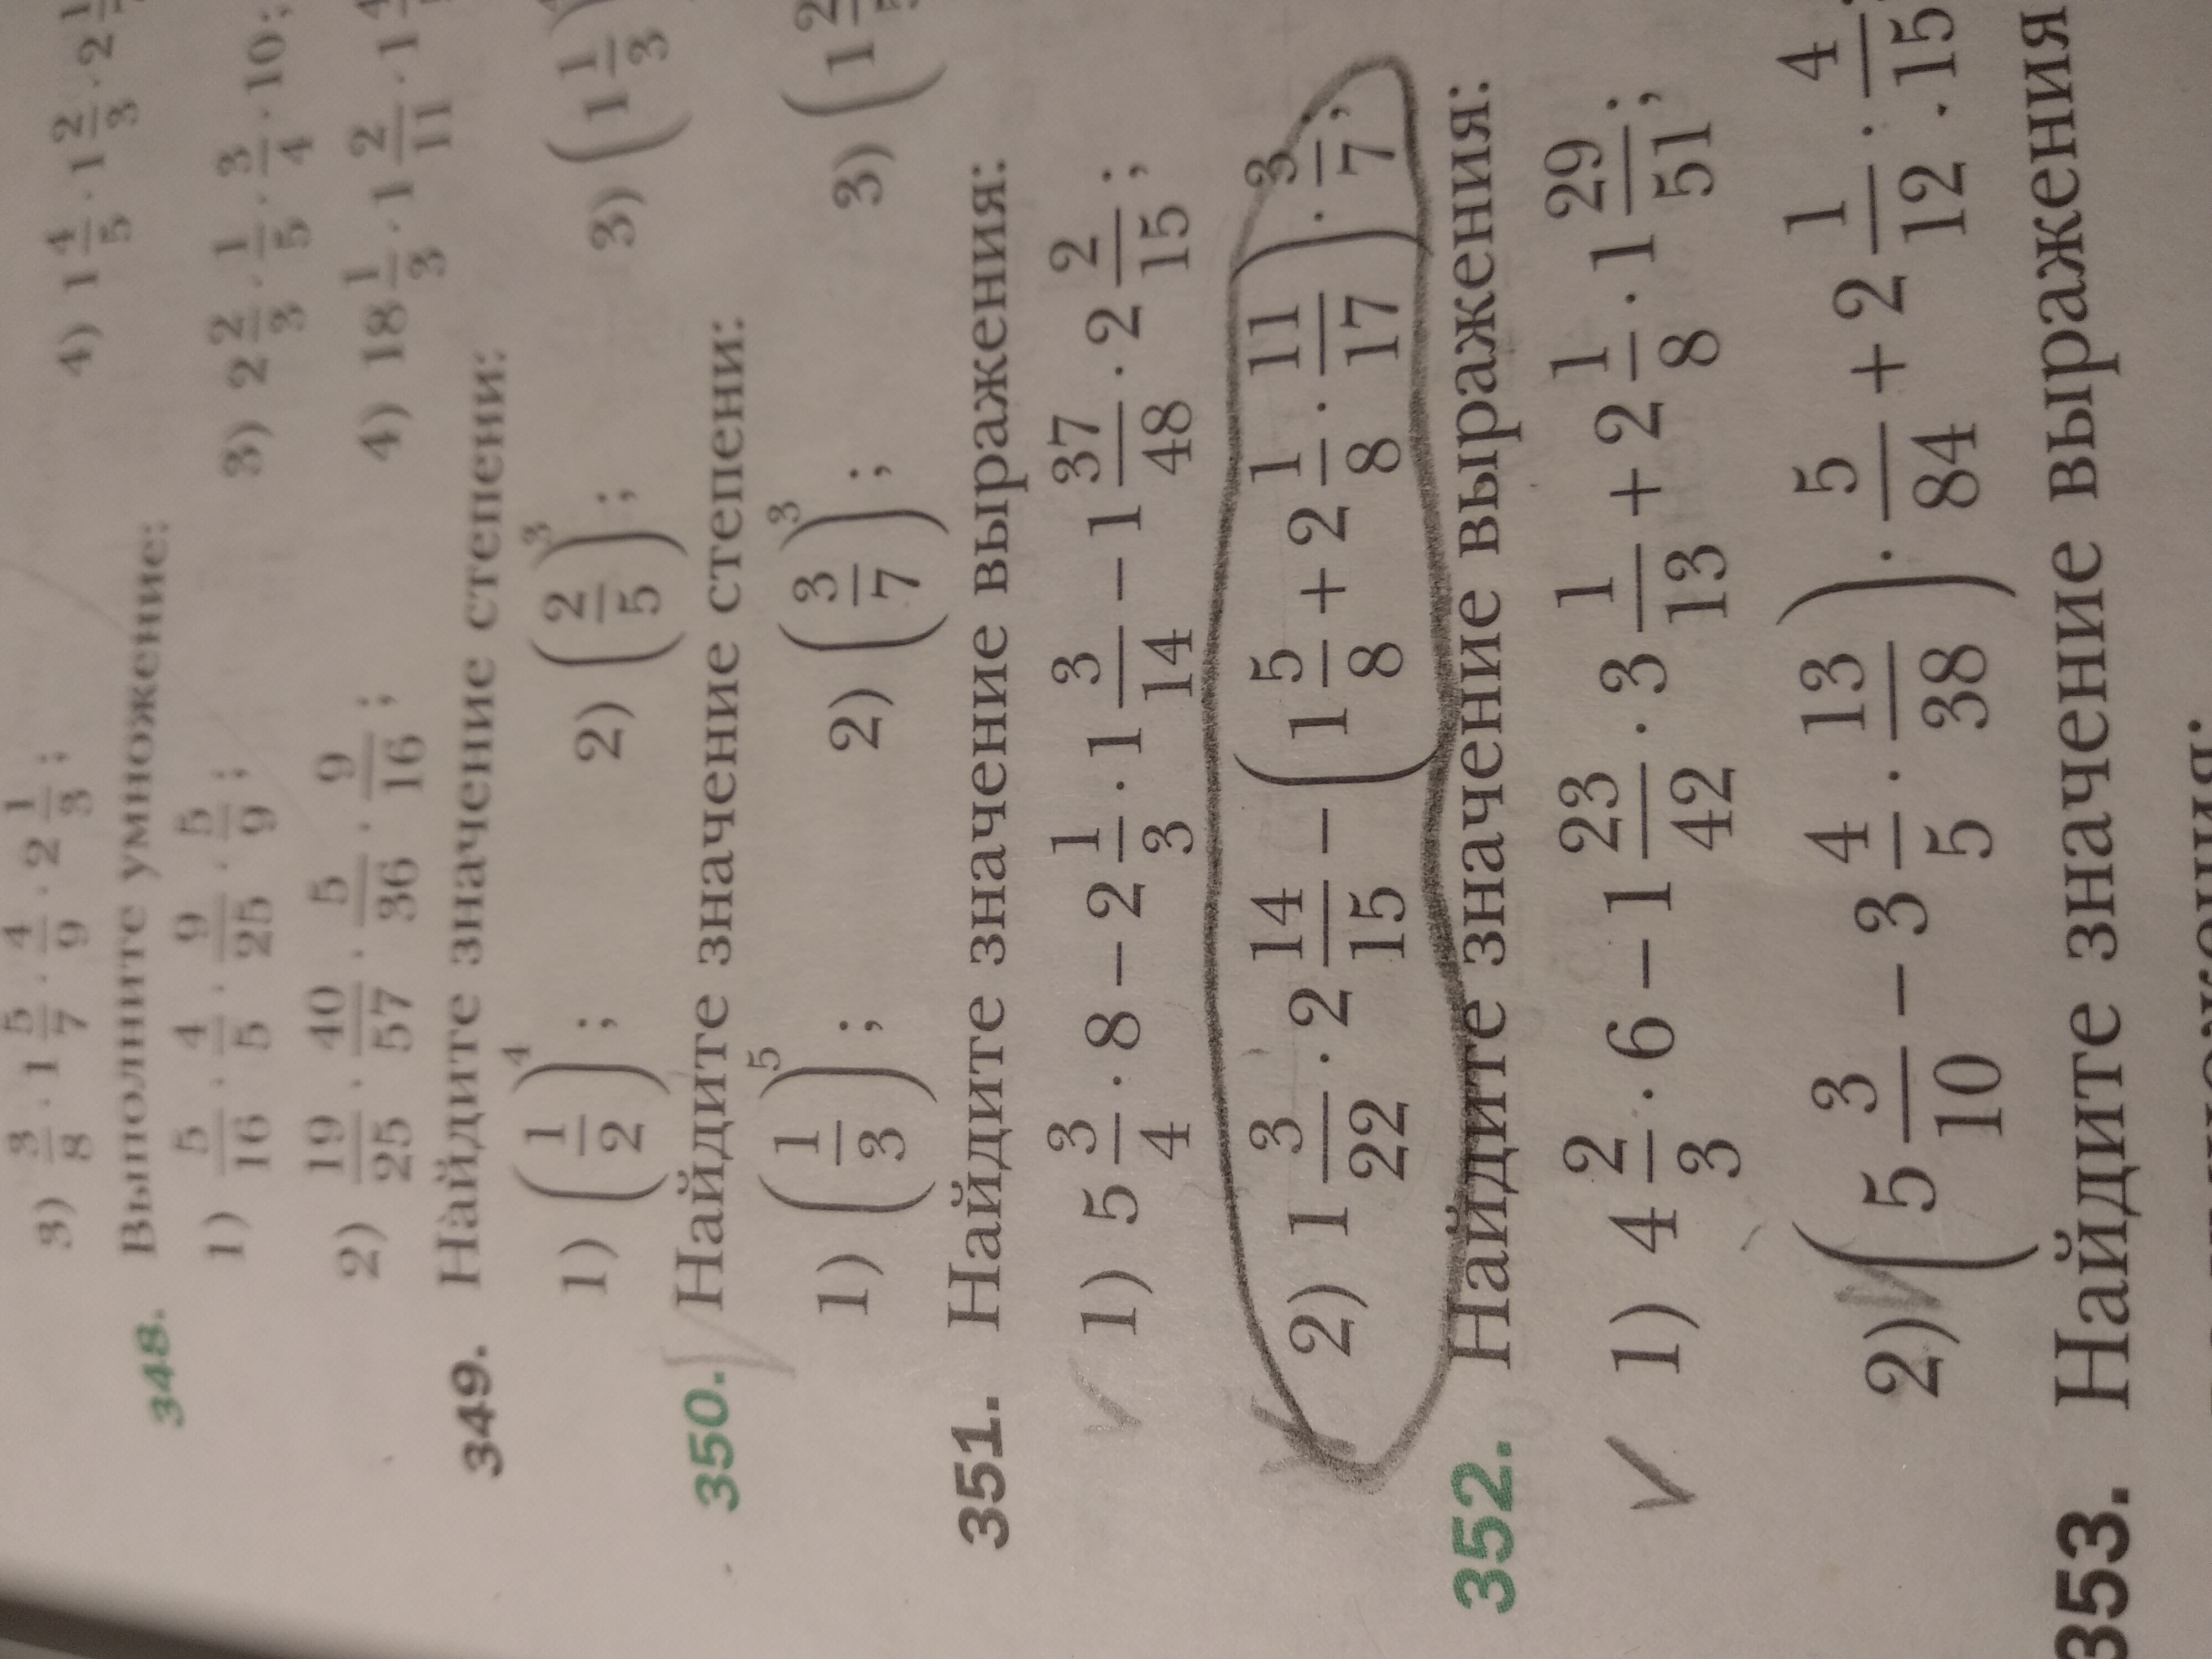 3) 3/8 · 1 5/7 · 4/9 · 2 1/3; 4) 1 4/5 · 1 2/3 · 2
348. Выполните умножение:
1) 5/16 · 4/5 · 9/25 · 5/9; 3) 2 2/3 · 1/5 · 3/4 · 10;
2) 19/25 · 40/57 · 5/36 · 9/16; 4) 18 1/3 · 1 2/11 · 1
349. Найдите значение степени:
1) (1/2)⁴; 2) (2/5)³; 3) (1 1/3)
350. Найдите значение степени:
1) (1/3)⁵; 2) (3/7)³; 3) (1
351. Найдите значение выражения:
1) 5 3/4 · 8 − 2 1/3 · 1 3/14 − 1 37/48 · 2 2/15;
2) 1 3/22 · 2 14/15 − (1 5/8 + 2 1/8 · 11/17) · 3/7;
352. Найдите значение выражения:
1) 4 2/3 · 6 − 1 23/42 · 3 1/13 + 2 1/8 · 1 29/51;
2) (5 3/10 − 3 4/5 · 13/38) · 5/84 + 2 1/12 · 4/15.
353. Найдите значение выражения